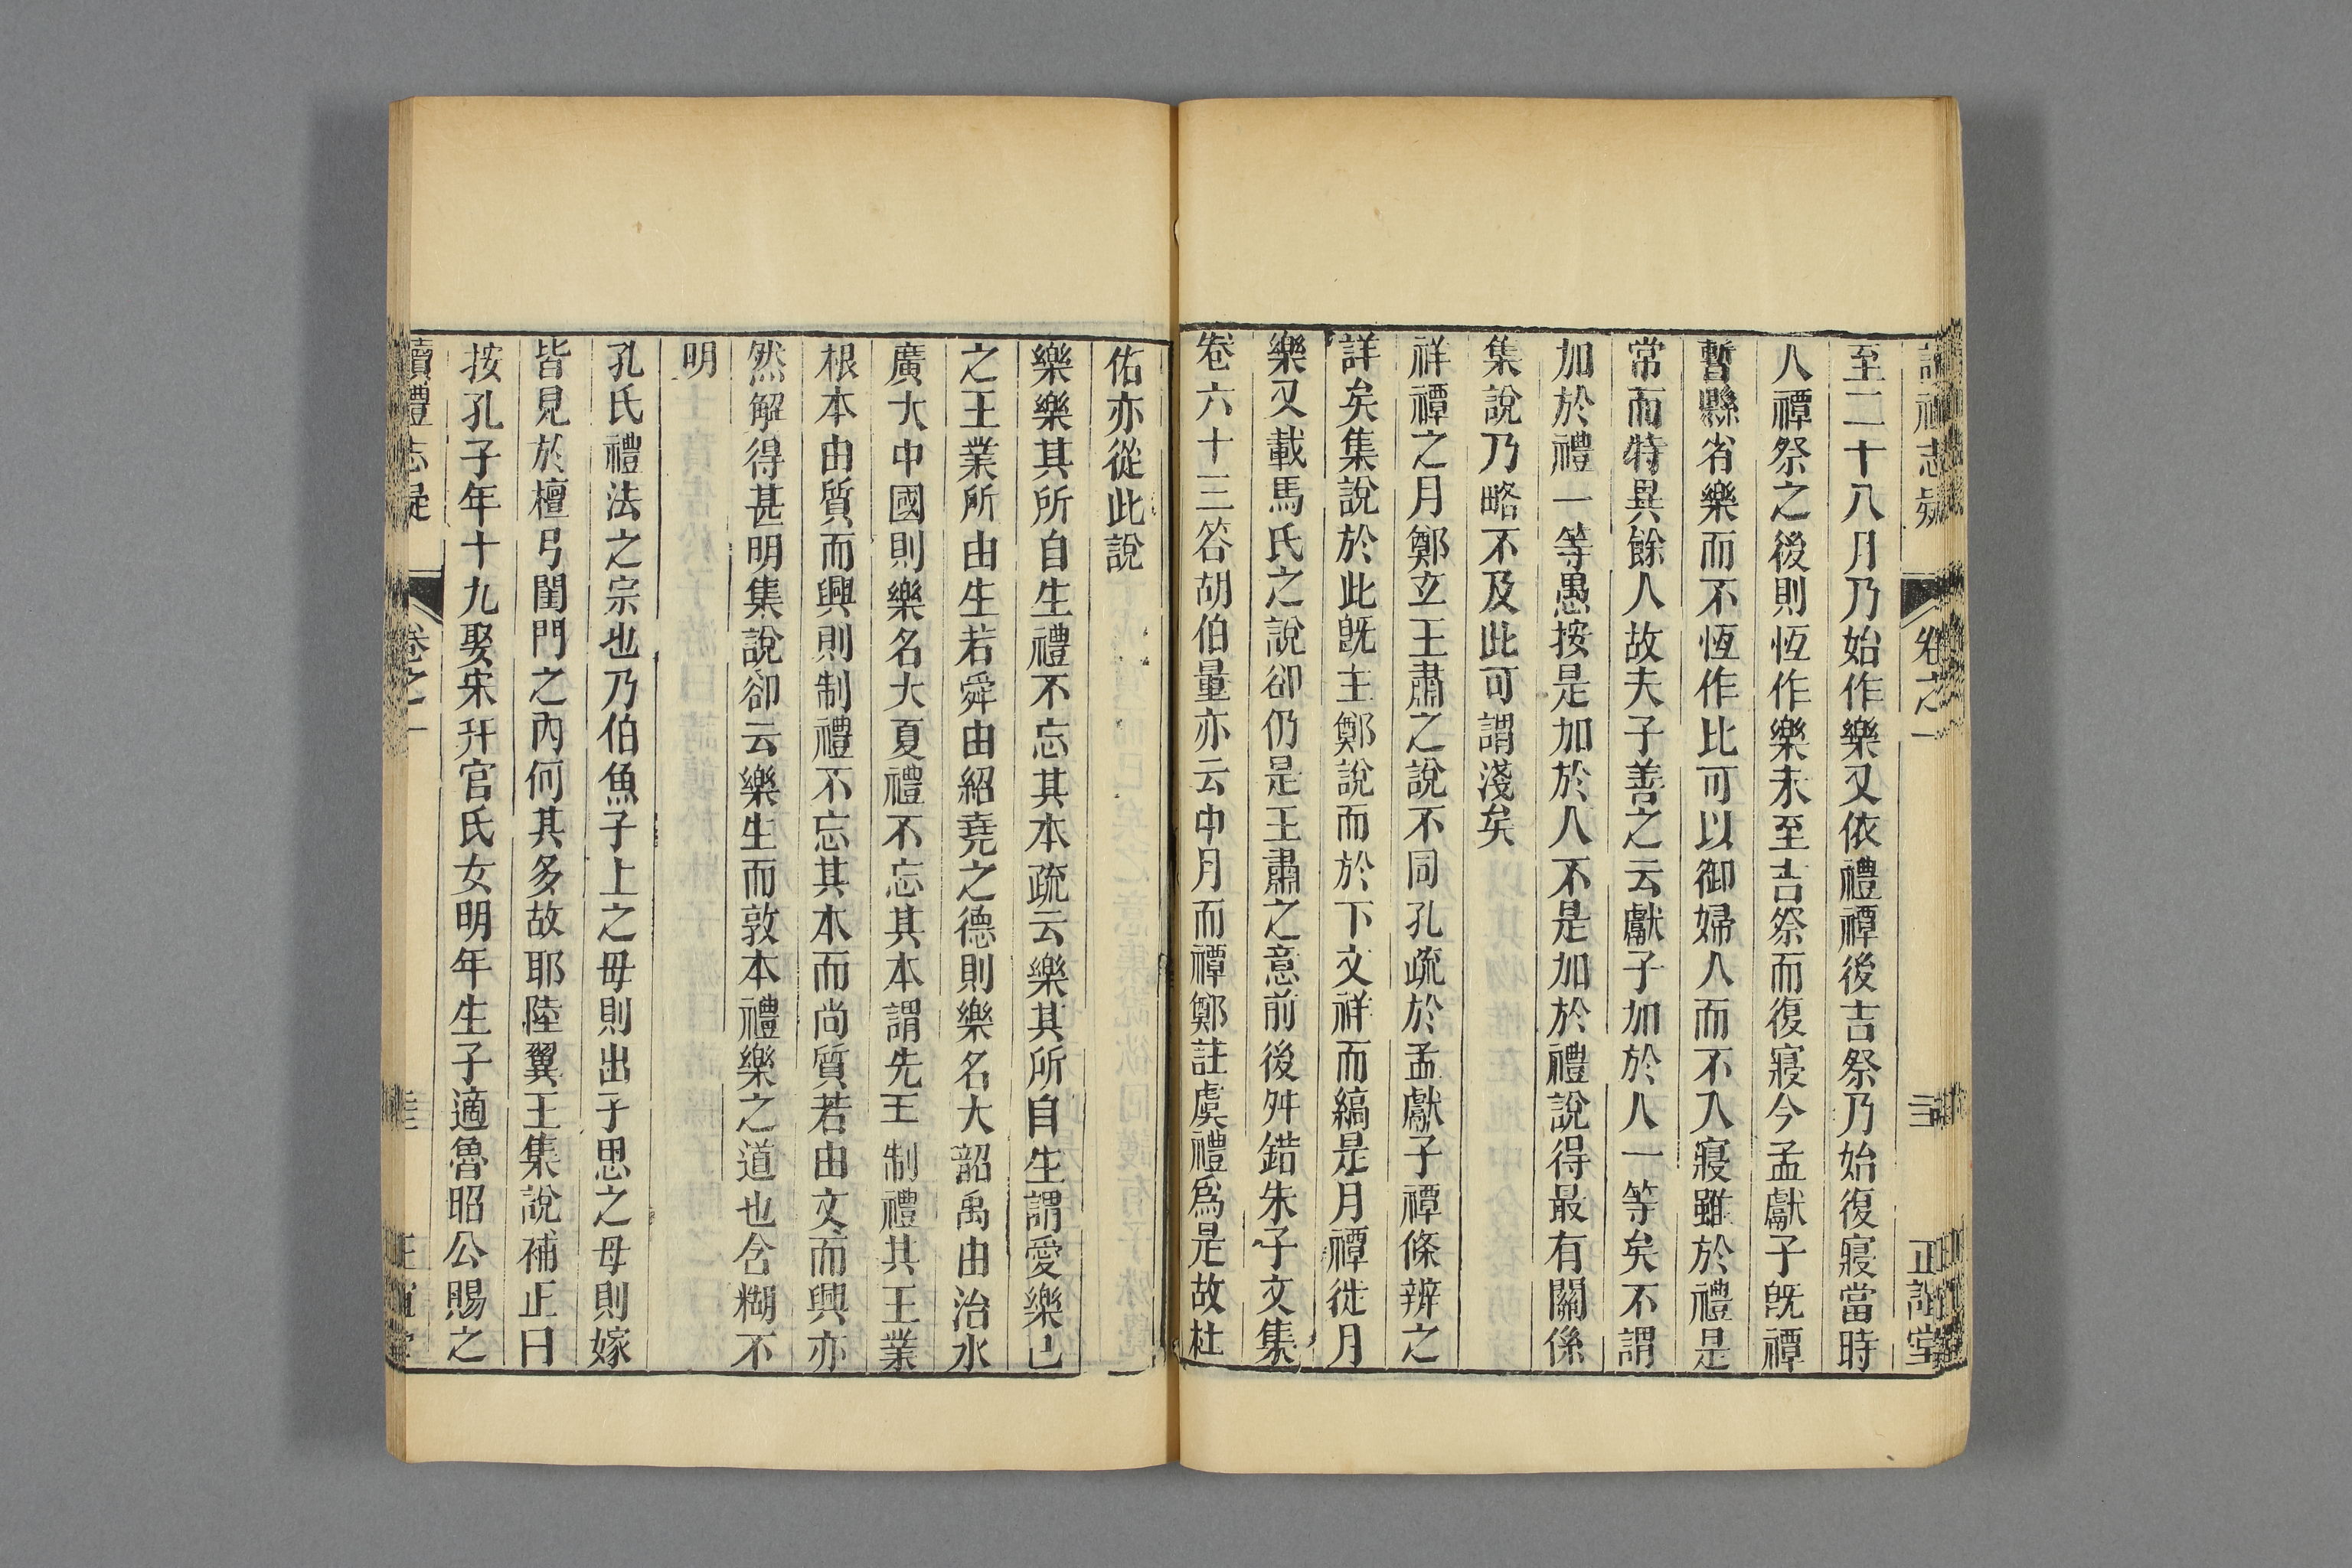 讀禮志疑 卷之一 正誼堂
至二十八月乃始作樂又依禮禫後吉祭乃始復寢當時
人禫祭之後則恆作樂未至吉祭而復寢今孟獻子既禫
暫縣省樂而不恆作比可以御婦人而不入寢雖於禮是
常而特異餘人故夫子善之云獻子加於人一等矣不謂
加於禮一等愚按是加於人不是加於禮說得最有關係
集說乃略不及此可謂淺矣
祥禫之月鄭玄王肅之說不同孔疏於孟獻子禫條辨之
詳矣集說於此既主鄭說而於下文祥而縞是月禫徙月
樂又載馬氏之說卻仍是王肅之意前後舛錯朱子文集
卷六十三答胡伯量亦云中月而禫鄭註虞禮爲是故杜
佑亦從此說
樂樂其所自生禮不忘其本疏云樂其所自生謂愛樂已
之王業所由生若舜由紹堯之德則樂名大韶禹由治水
廣大中國則樂名大夏禮不忘其本謂先王制禮其王業
根本由質而興則制禮不忘其本而尚質若由文而興亦
然解得甚明集說卻云樂生而敦本禮樂之道也含糊不
明
孔氏禮法之宗也乃伯魚子上之母則出子思之母則嫁
皆見於檀弓閨門之內何其多故耶陸翼王集說補正曰
按孔子年十九娶宋幵官氏女明年生子適魯昭公賜之
讀禮志疑 卷之一